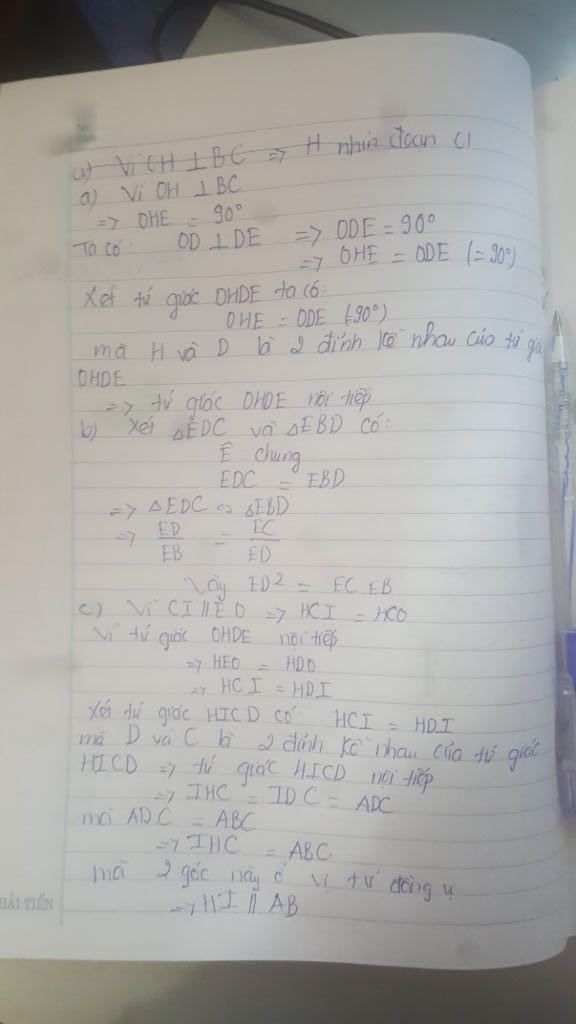 a) Vì CH ⊥ BC => H nhìn đoạn CI
a) Vì OH ⊥ BC
=> OHE = 90°
Ta có: OD ⊥ DE => ODE = 90°
=> OHE = ODE (= 90°)
Xét tứ giác OHDE ta có:
OHE = ODE (=90°)
mà H và D là 2 đỉnh kề nhau của tứ giá
OHDE
=> tứ giác OHDE nội tiếp
b) Xét △EDC và △EBD có:
Ê chung
EDC = EBD
=> △EDC ∽ △EBD
=> ED/EB = EC/ED
Vậy ED² = EC EB
c) Vì CI // EO => HCI = HCO
Vì tứ giác OHDE nội tiếp
=> HEO = HDO
=> HCI = HDI
Xét tứ giác HICD có HCI = HDI
mà D và C là 2 đỉnh kề nhau của tứ giác
HICD => tứ giác HICD nội tiếp
=> IHC = IDC = ADC
mà ADC = ABC
=> IHC = ABC
mà 2 góc này ở vị trí đồng vị
=> HI // AB
HẢI TIẾN